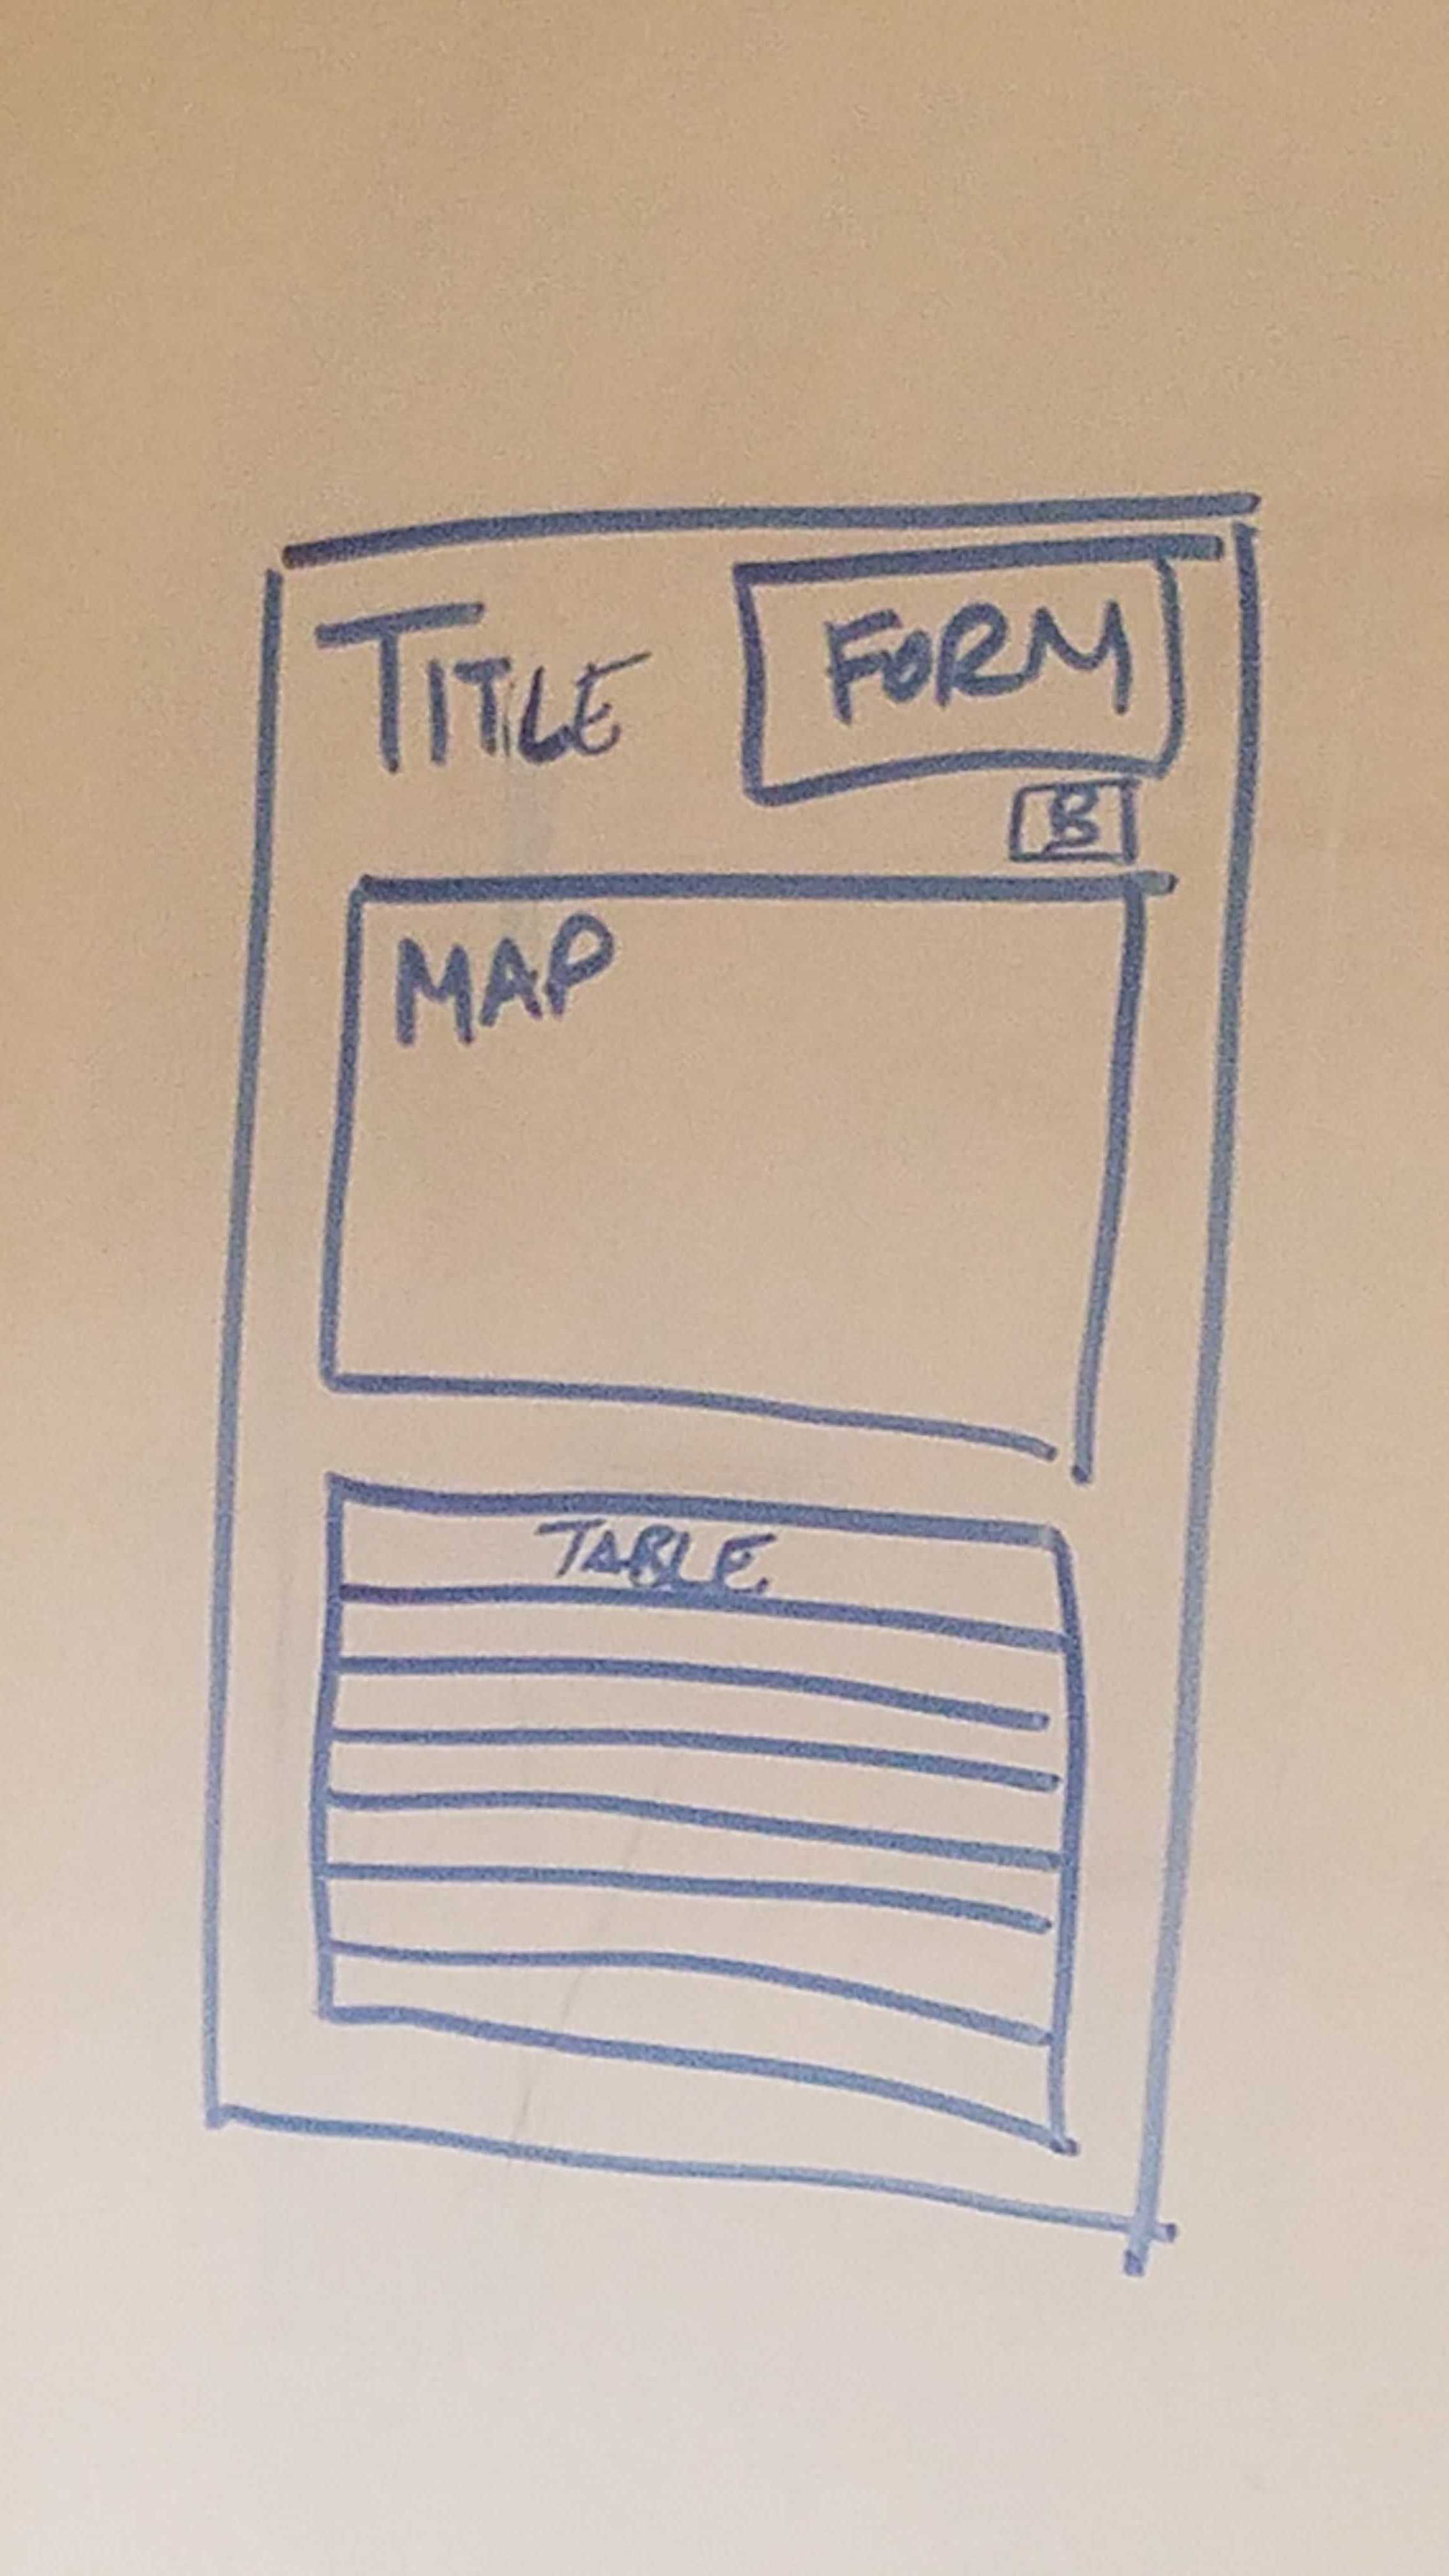 TITLE
FORM
B
MAP
TABLE